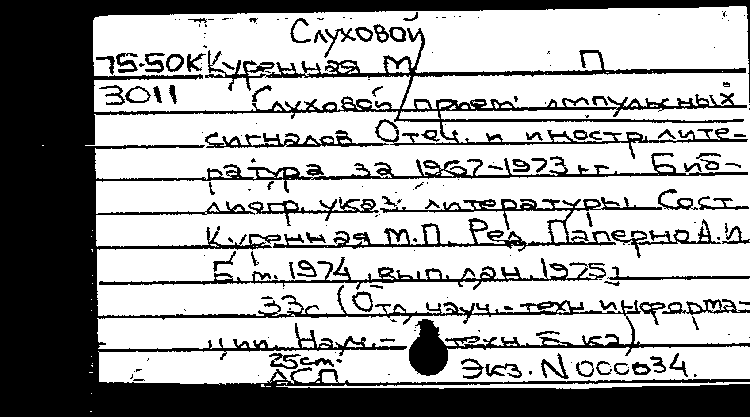 Слуховой
75-50К Куренная М. П
3011 Слуховой прием импульсных
сигналов Отеч. и иностр. лите-
ратура за 1967-1973 гг. Биб-
лиогр. указ. литературы. Сост.
Куренная М.П. Ред. Паперно А.И.
Б. м. 1974, вып. дан. 1975]
33с (Отд. науч.-техн. информа-
ции. Науч.- техн. б-ка)
25см.
ДСП. Экз. N 000034.